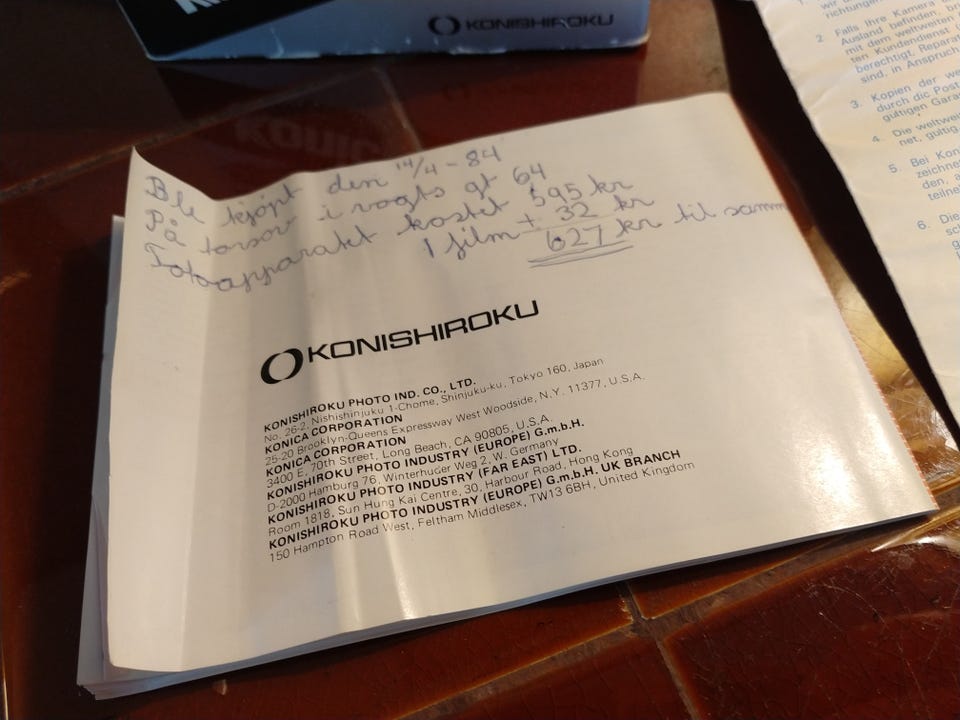 KONISHIROKU
Ble kjøpt den 14/4 - 84
På torsov i vogts gt 64
Fotoapparatet kostet 595 kr
1 film + 32 kr
627 kr til samm
KONISHIROKU
KONISHIROKU PHOTO IND. CO., LTD.
No. 26-2, Nishishinjuku 1-Chome, Shinjuku-ku, Tokyo 160, Japan
KONICA CORPORATION
25-20 Brooklyn-Queens Expressway West Woodside, N.Y. 11377, U.S.A.
KONICA CORPORATION
3400 E. 70th Street, Long Beach, CA 90805, U.S.A.
KONISHIROKU PHOTO INDUSTRY (EUROPE) G.m.b.H.
D-2000 Hamburg 76, Winterhuder Weg 2, W. Germany
KONISHIROKU PHOTO INDUSTRY (FAR EAST) LTD.
Room 1818, Sun Hung Kai Centre, 30, Harbour Road, Hong Kong
KONISHIROKU PHOTO INDUSTRY (EUROPE) G.m.b.H. UK BRANCH
150 Hampton Road West, Feltham Middlesex, TW13 6BH, United Kingdom
2 Falls Ihre Kamera
Ausland befinden, br
mit dem weltweiten
ten Kundendienst
berechtigt, Repara
sind, in Anspruch
3. Kopien der we
durch die Post
gültigen Gara
4. Die weltwe
net, gültig
5. Bei Kon
zeichne
den, a
nellen
6. Die
sch